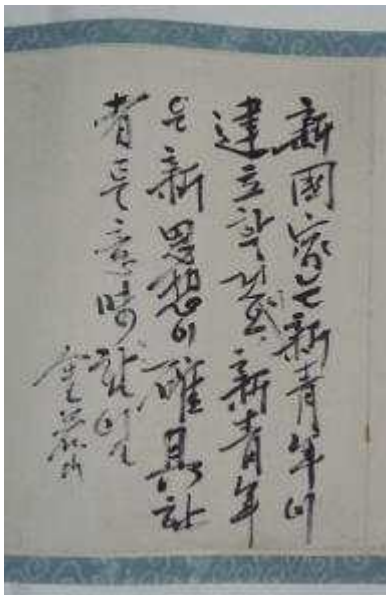 新國家는 新青年이
建立할지며 新青年
은 新思想이 確具한
者를 意味함이